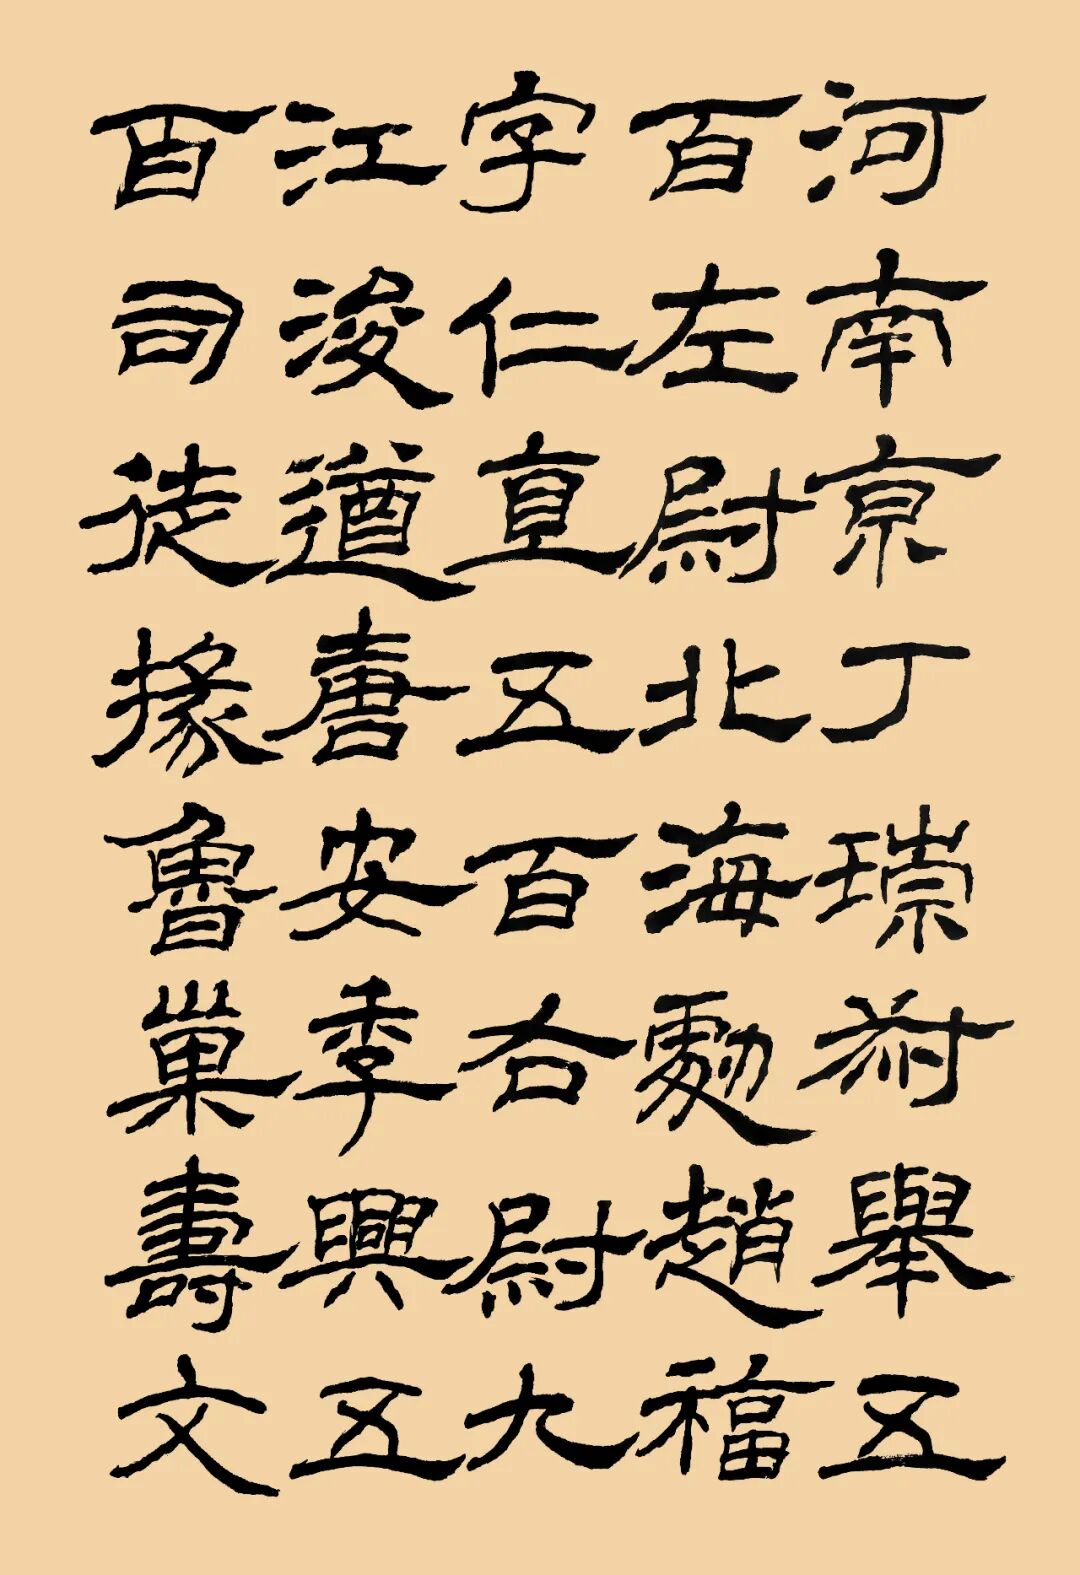 河南京丁琮叔舉五
百左尉北海勮趙福
字仁直五百右尉九
江浚遒唐安季興五
百司徒掾魯巢壽文